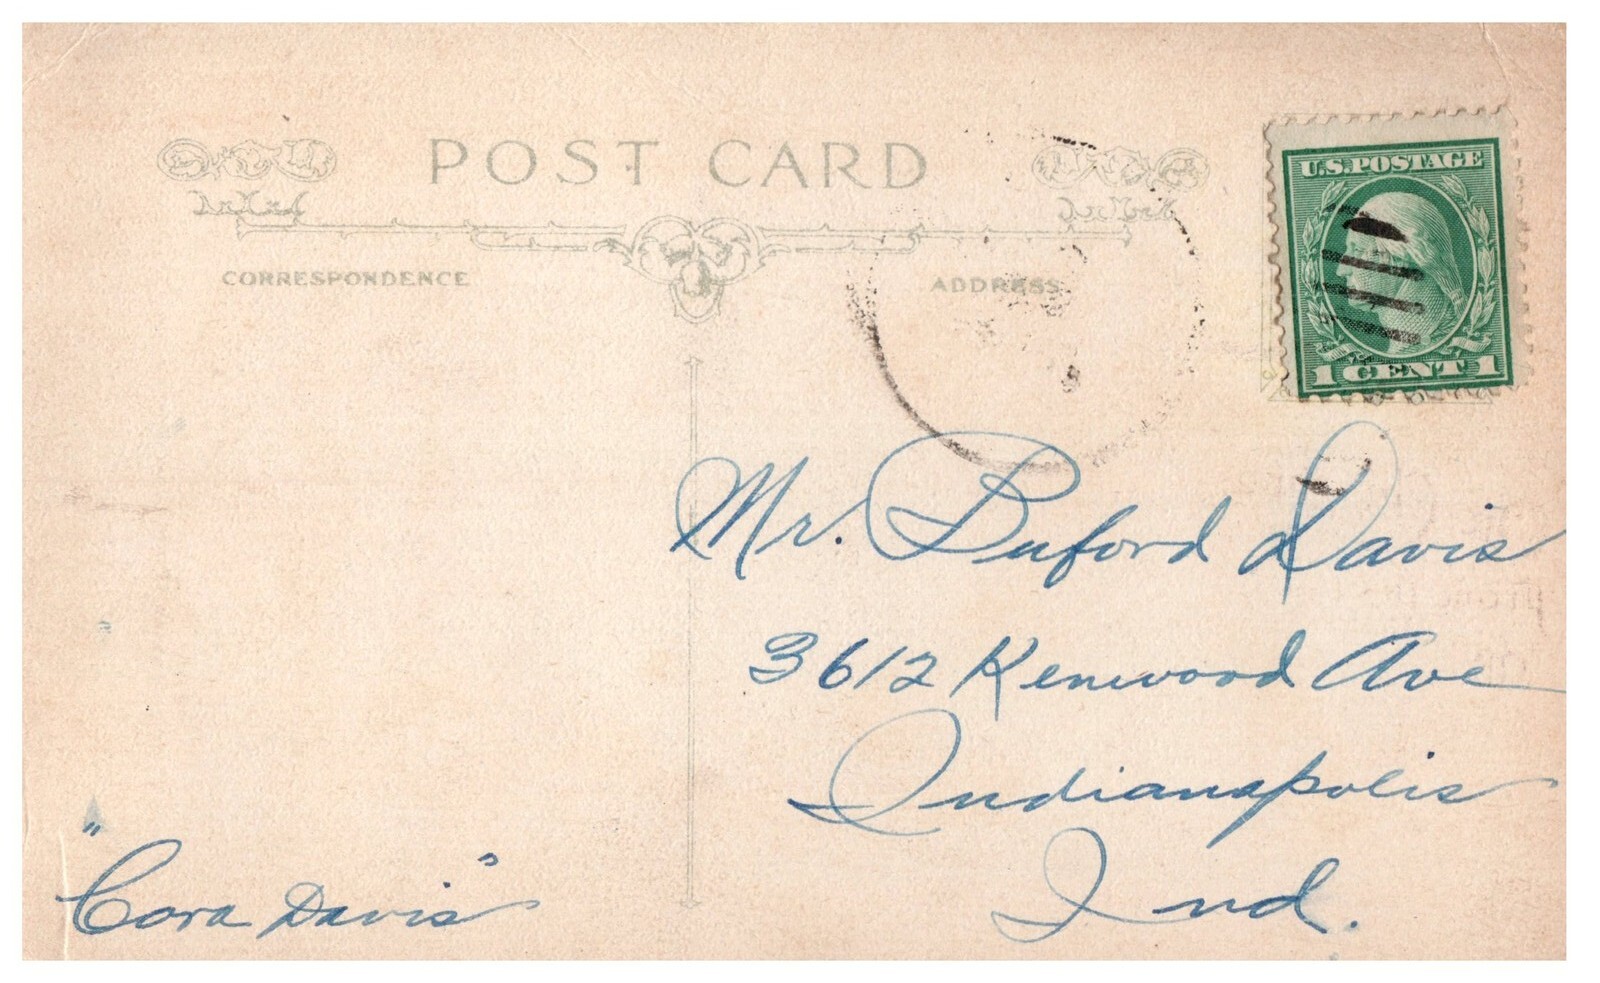 POST CARD
CORRESPONDENCE
ADDRESS
U.S. POSTAGE
1 CENT 1
Mr. Buford Davis
3612 Kenwood Ave
Indianapolis
Ind.
"Cora Davis"